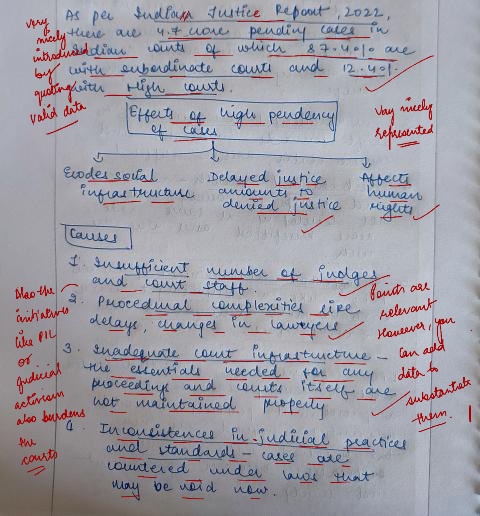 As per Indian Justice Report, 2022,
there are 4.7 crore pending cases in
Indian courts of which 87.40% are
with subordinate courts and 12.40%
with High courts.
very
nicely
introduced
by
quoting
valid data
Effects of high pendency
of cases
Very nicely
represented
Erodes social
infrastructure
Delayed justice
amounts to
denied justice
Affects
human
rights
Causes
1. Insufficient number of judges
and court staff.
2. Procedural complexities like
delays, changes in lawyers
3. Inadequate court infrastructure –
the essentials needed for any
proceeding and courts itself are
not maintained properly
4. Inconsistences in judicial practices
and standards – cases are
countered under laws that
may be void now.
Also the
initiatives
like PIL
or
judicial
activism
also burdens
the
courts
Points are
relevant
However, you
can add
data to
substantiate
them.